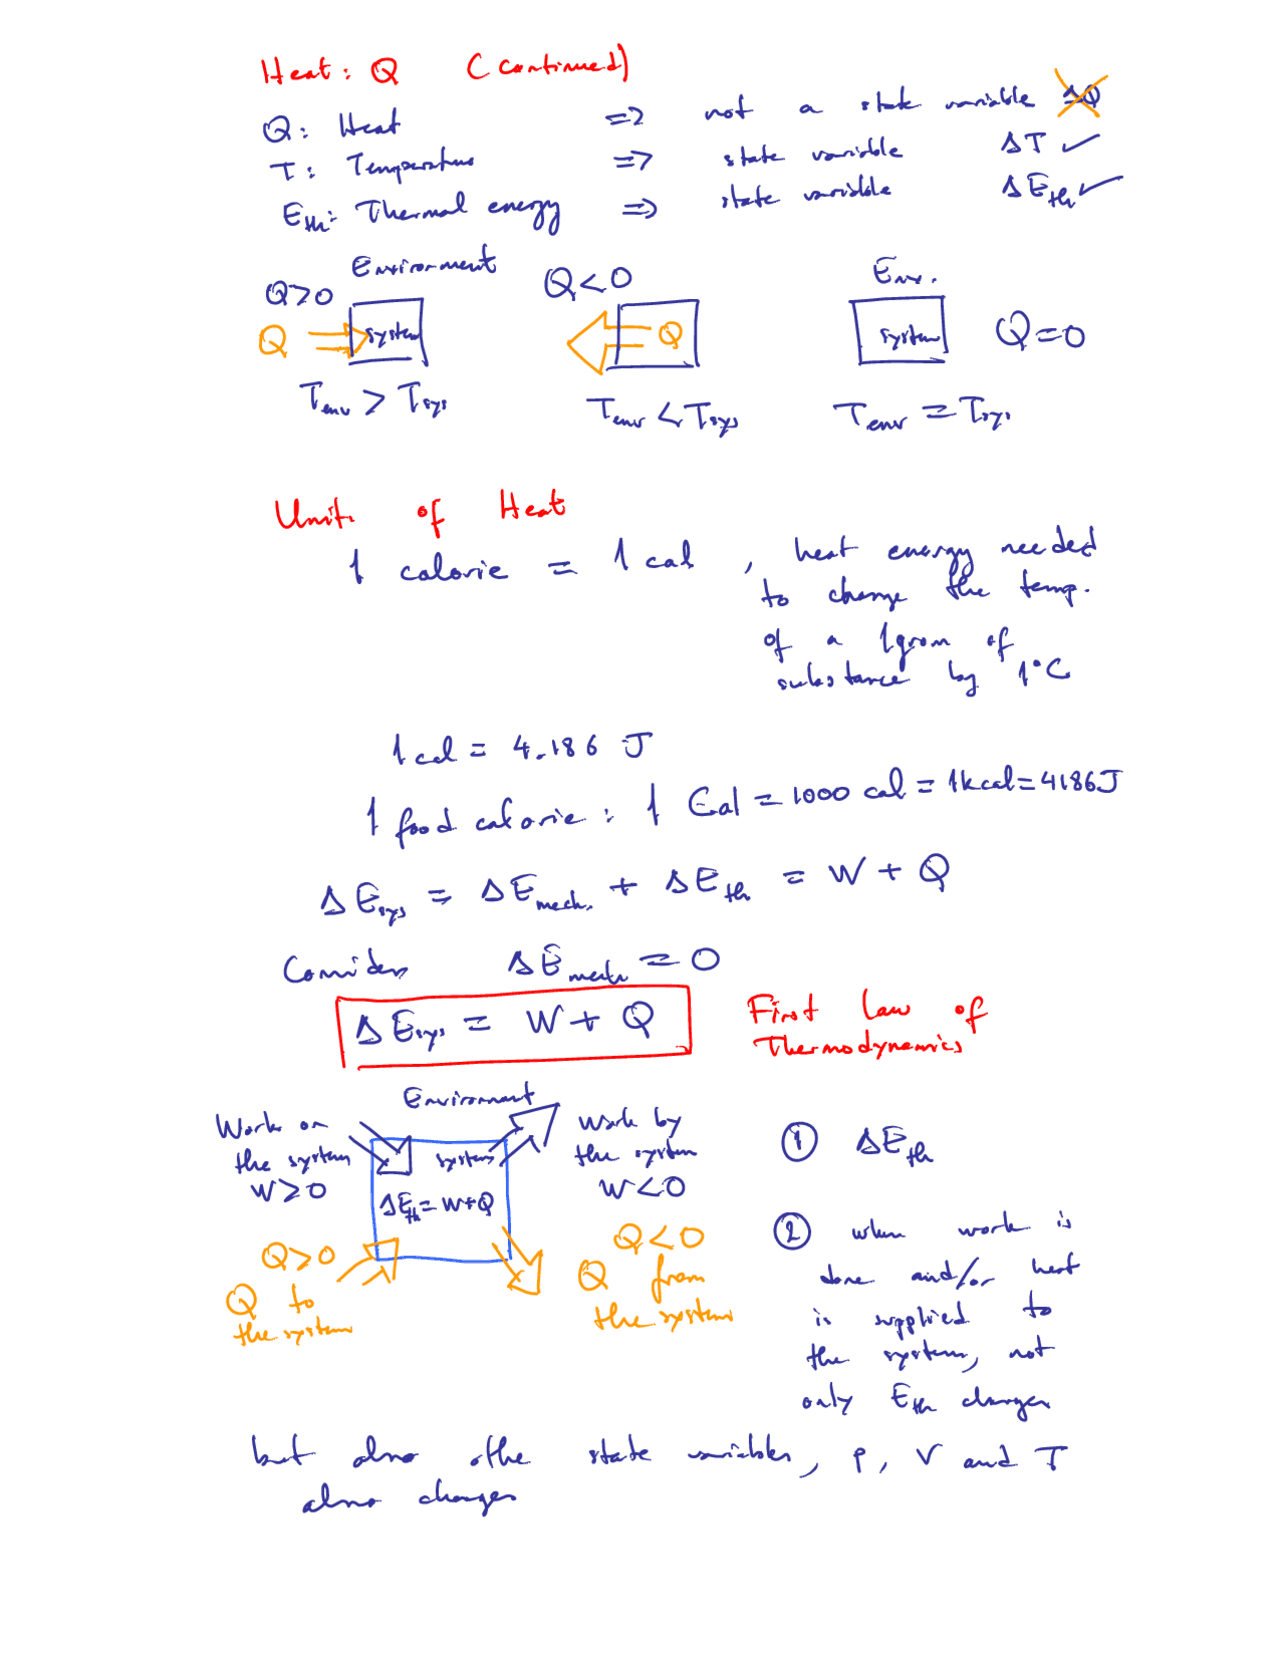 Heat: Q (continued)
Q: Heat => not a state variable ΔQ
T: Temperature => state variable ΔT ✓
E_th: Thermal energy => state variable ΔE_th ✓
Environment Q<0 Env.
Q>0
Q system Q system Q=0
T_env > T_sys T_env < T_sys T_env = T_sys
Units of Heat
1 calorie = 1 cal , heat energy needed
to change the temp.
of a 1 gram of
substance by 1°C
1 cal = 4.186 J
1 food calorie: 1 Cal = 1000 cal = 1 kcal = 4186 J
ΔE_sys = ΔE_mech. + ΔE_th = W + Q
Consider ΔE_mech = 0
ΔE_sys = W + Q First Law of
Thermodynamics
Environment
Work on
the system
W>0
system
ΔE_th = W+Q
Work by
the system
W<0
Q>0
Q to
the system
Q<0
Q from
the system
① ΔE_th
② when work is
done and/or heat
is supplied to
the system, not
only E_th changes
but also othe state variables, P, V and T
also changes